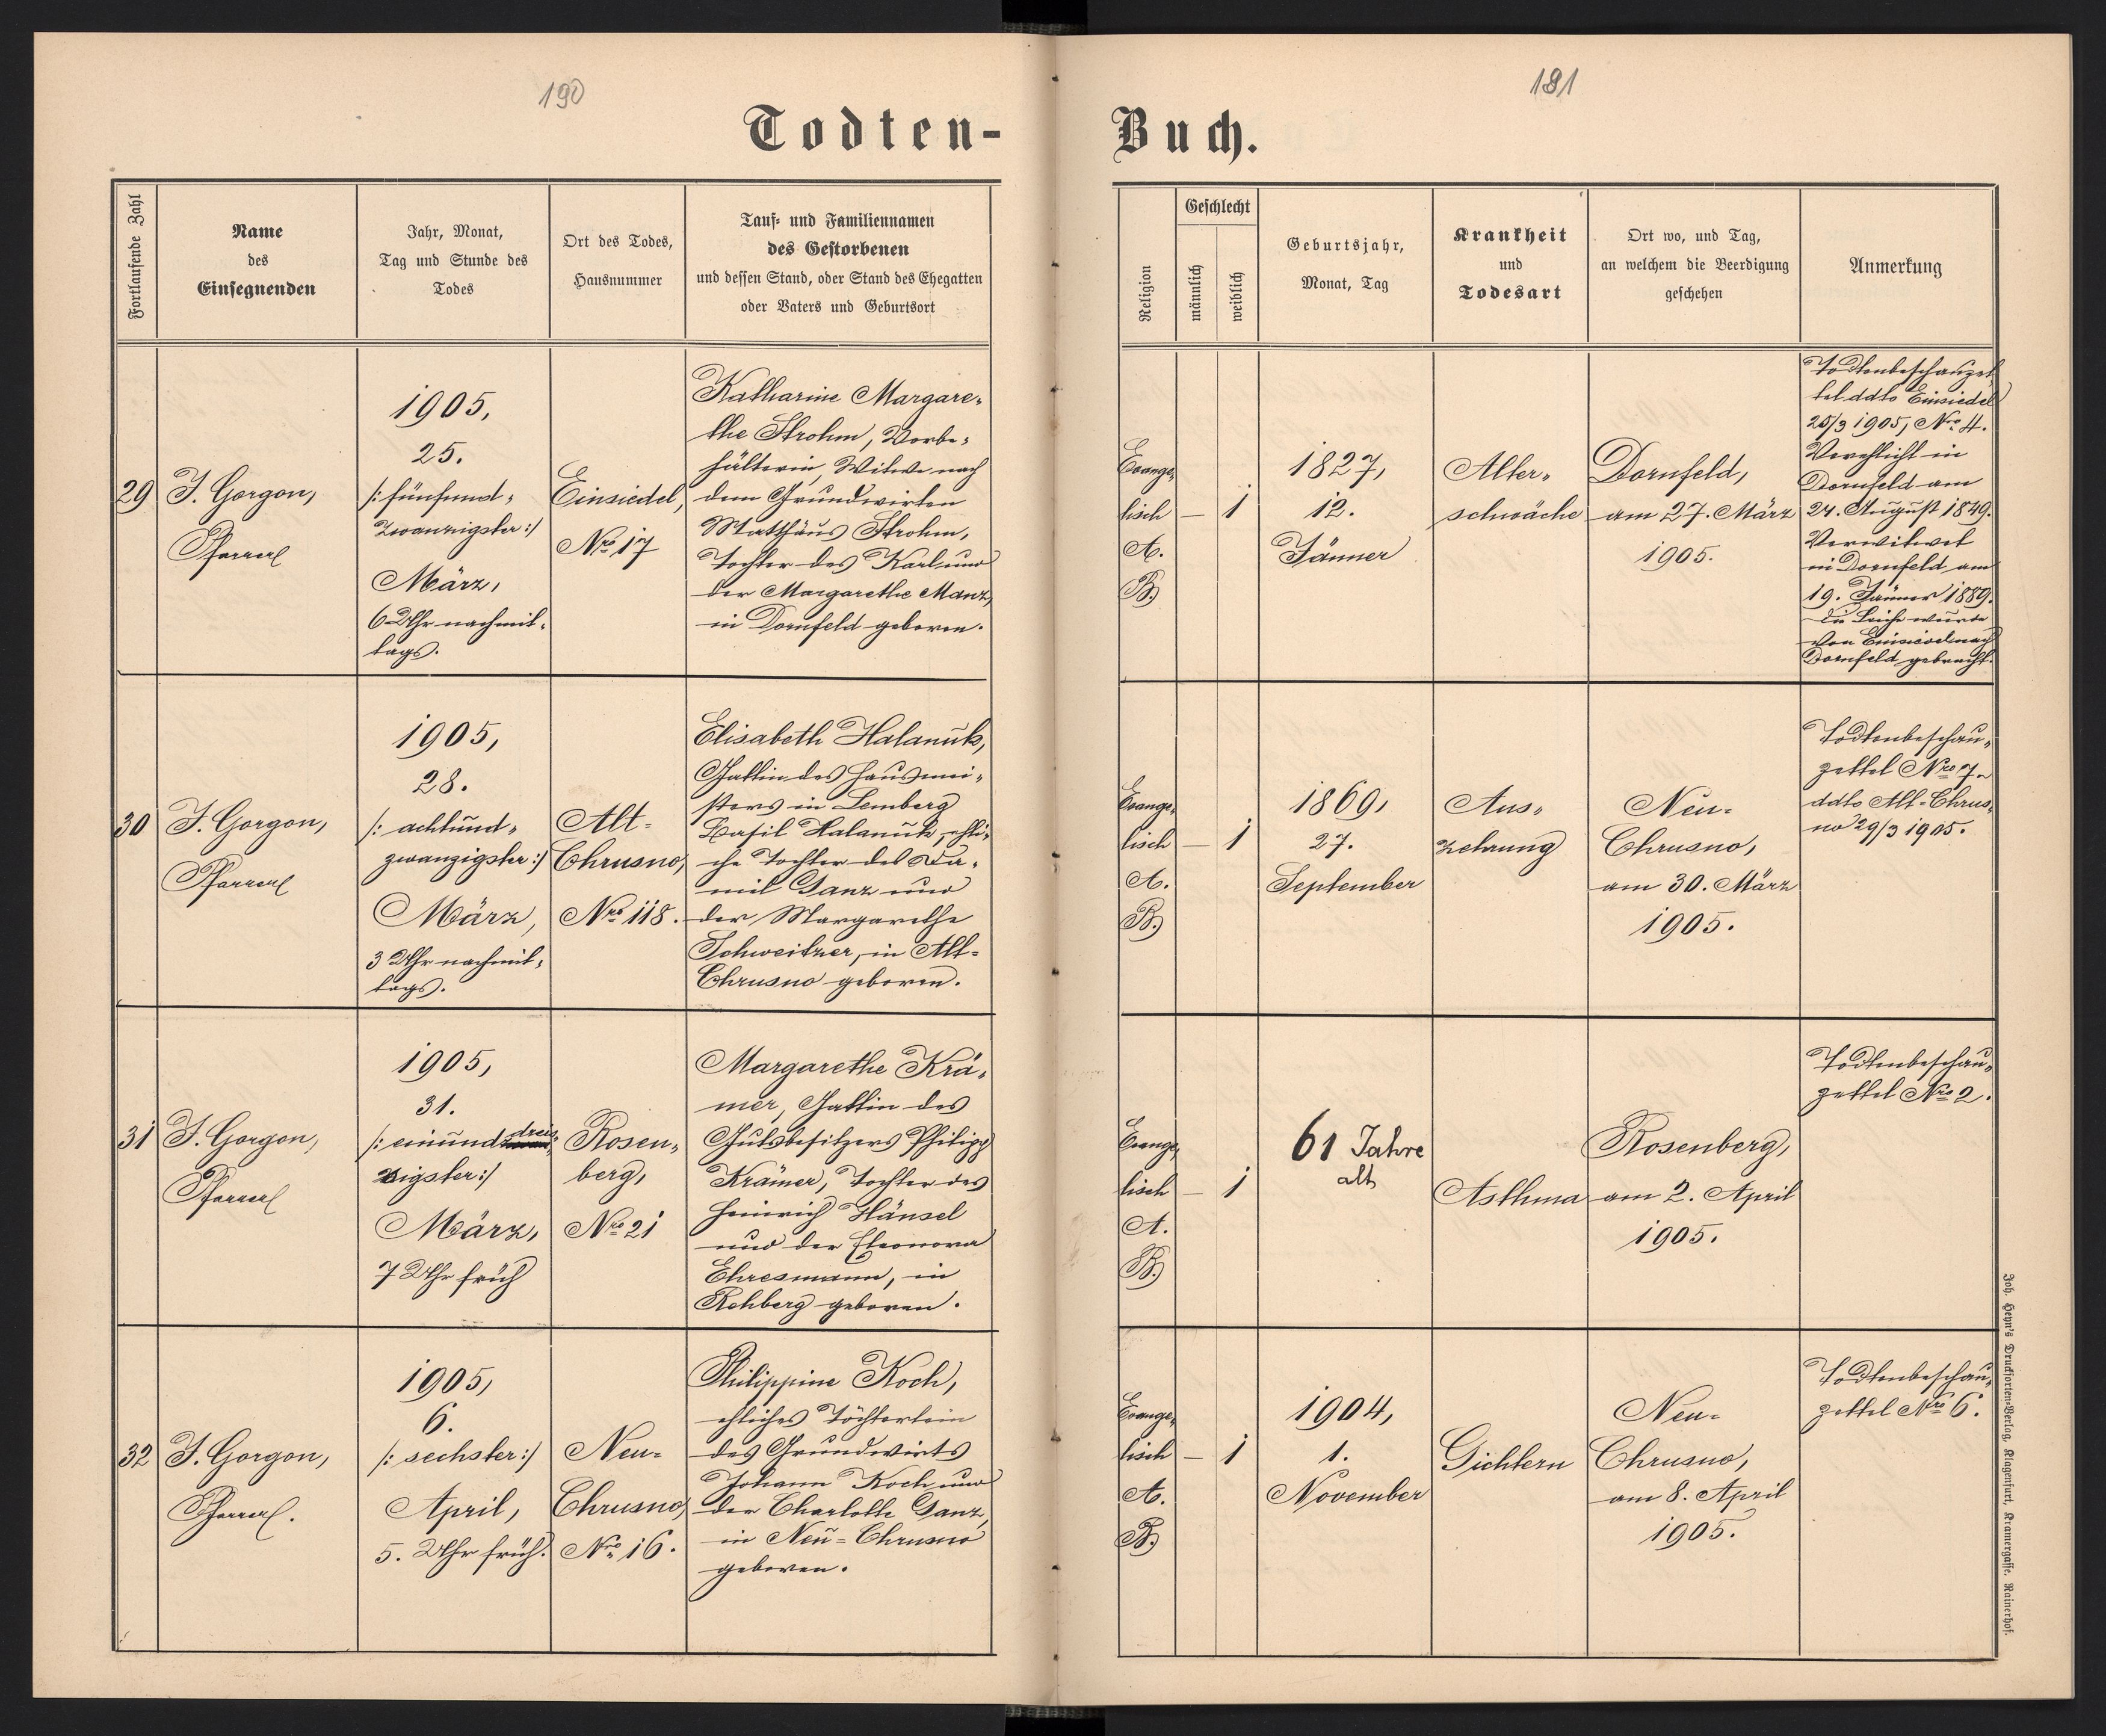 190
Todten-
Fortlaufende Zahl
Name
des
Einsegnenden
Jahr, Monat,
Tag und Stunde des
Todes
Ort des Todes,
Hausnummer
Tauf- und Familiennamen
des Gestorbenen
und dessen Stand, oder Stand des Ehegatten
oder Vaters und Geburtsort
29
J. Gorgon,
Pfarrer
1905,
25.
/: fünfund-
zwanzigster :/
März,
6 Uhr nachmit-
tags.
Einsiedel,
Nro 17
Katharine Margare-
the Strohm, Vorbe-
hälterin, Witwe nach
dem Grundwirten
Matthäus Strohm,
Tochter des Karl und
der Margarethe Manz,
in Dornfeld geboren.
30
J. Gorgon,
Pfarrer
1905,
28.
/: achtund-
zwanzigster :/
März,
3 Uhr nachmit-
tags.
Alt-
Chrusno,
Nro 118.
Elisabeth Halanuk,
Gattin des Hausmei-
sters in Lemberg
Basil Halanuk, ehli-
che Tochter des Da-
niel Ganz und
der Margarethe
Schweitzer, in Alt-
Chrusno geboren.
31
J. Gorgon,
Pfarrer
1905,
31.
/: einund drei-
zigster :/
März,
7 Uhr früh
Rosen-
berg,
Nro 21
Margarethe Krä-
mer, Gattin des
Gutsbesitzers Philipp
Krämer, Tochter des
Heinrich Hänsel
und der Eleonora
Ehresmann, in
Rehberg geboren.
32
J. Gorgon,
Pfarrer.
1905,
6.
/: sechster :/
April,
5. Uhr früh.
Neu-
Chrusno,
Nro 16.
Philippine Koch,
ehliches Töchterlein
des Grundwirts
Johann Koch und
der Charlotte Ganz,
in Neu-Chrusno
geboren.
181
Buch.
Religion
Geschlecht
männlich
weiblich
Geburtsjahr,
Monat, Tag
Krankheit
und
Todesart
Ort wo, und Tag,
an welchem die Beerdigung
geschehen
Anmerkung
Evange-
lisch
A.
B.
— 1
1827,
12.
Jänner
Alter-
schwäche
Dornfeld,
am 27. März
1905.
Todtenbeschauzet-
tel ddto Einsiedel
25/3 1905, Nro 4.
Verehlicht in
Dornfeld am
24. August 1849.
Verwitwet
in Dornfeld, am
19. Jänner 1889.
Die Leiche wurde
von Einsiedel nach
Dornfeld gebracht.
Evange-
lisch
A.
B.
— 1
1869,
27.
September
Aus-
zehrung
Neu-
Chrusno,
am 30. März
1905.
Todtenbeschau-
zettel Nro 7.
ddto Alt-Chrus-
no 29/3 1905.
Evange-
lisch
A.
B.
— 1
61 Jahre
alt
Asthma
Rosenberg,
am 2. April
1905.
Todtenbeschau-
zettel Nro 2.
Evange-
lisch
A.
B.
— 1
1904,
1.
November
Gichtern
Neu-
Chrusno,
am 8. April
1905.
Todtenbeschau-
zettel Nro 6.
Joh. Heyn's Drucksorten-Verlag, Klagenfurt, Kramergasse. Rainerhof.